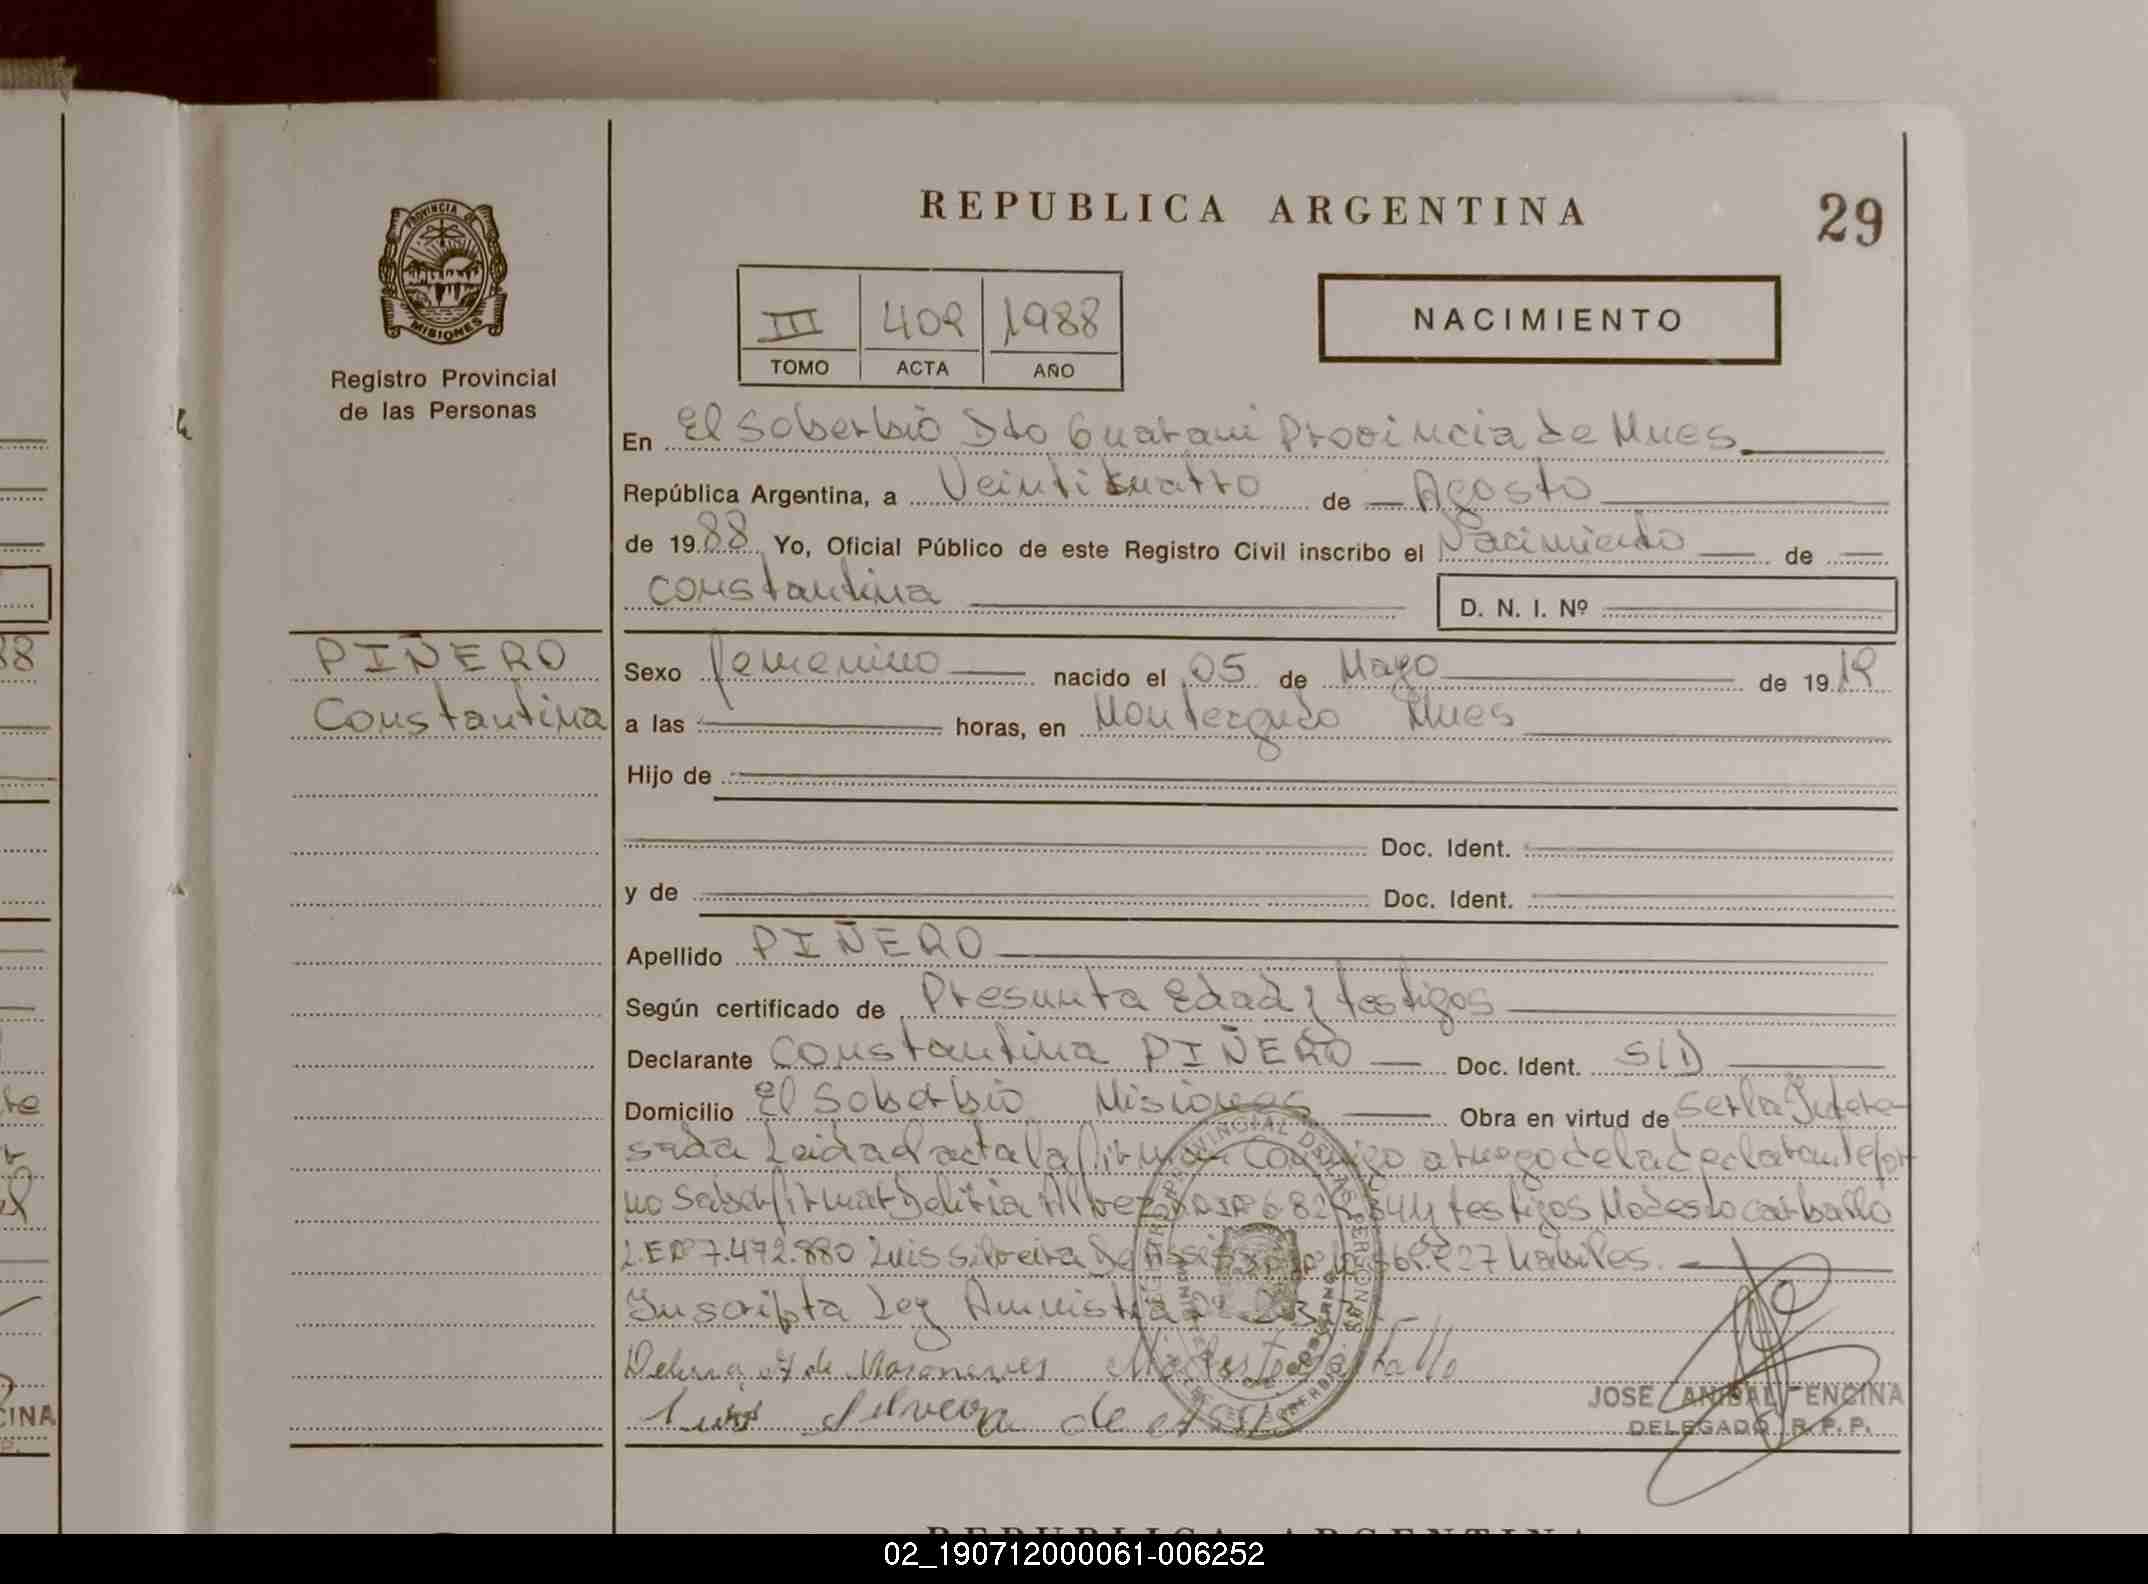 REPUBLICA ARGENTINA
29
PROVINCIA DE MISIONES
Registro Provincial
de las Personas
III 409 1988
TOMO ACTA AÑO
NACIMIENTO
En El Soberbio Dto Guarani Provincia de Mnes
República Argentina, a Veinticuatro de Agosto
de 1988 Yo, Oficial Público de este Registro Civil inscribo el Nacimiento de
Constantina
D. N. I. Nº
PIÑERO
Constantina
Sexo femenino nacido el 05 de Mayo de 1919
a las horas, en Monteagudo Mnes
Hijo de
Doc. Ident.
y de Doc. Ident.
Apellido PIÑERO
Según certificado de Presunta Edad y testigos
Declarante Constantina PIÑERO Doc. Ident. S/D
Domicilio El Soberbio Misiones Obra en virtud de ser la Intere-
sada Leida el acta la firman Conmigo a ruego de la declarante por
no saber firmar testigos Modesto Carballo
L.E Nº 7.472.880 Luis Silveira De Assis habiles.
Inscripta Ley Amnistia
Luis Silveira de Assis
JOSE ANIBAL ENCINA
DELEGADO R. P. P.
88
CINA
REPUBLICA ARGENTINA
02_190712000061-006252